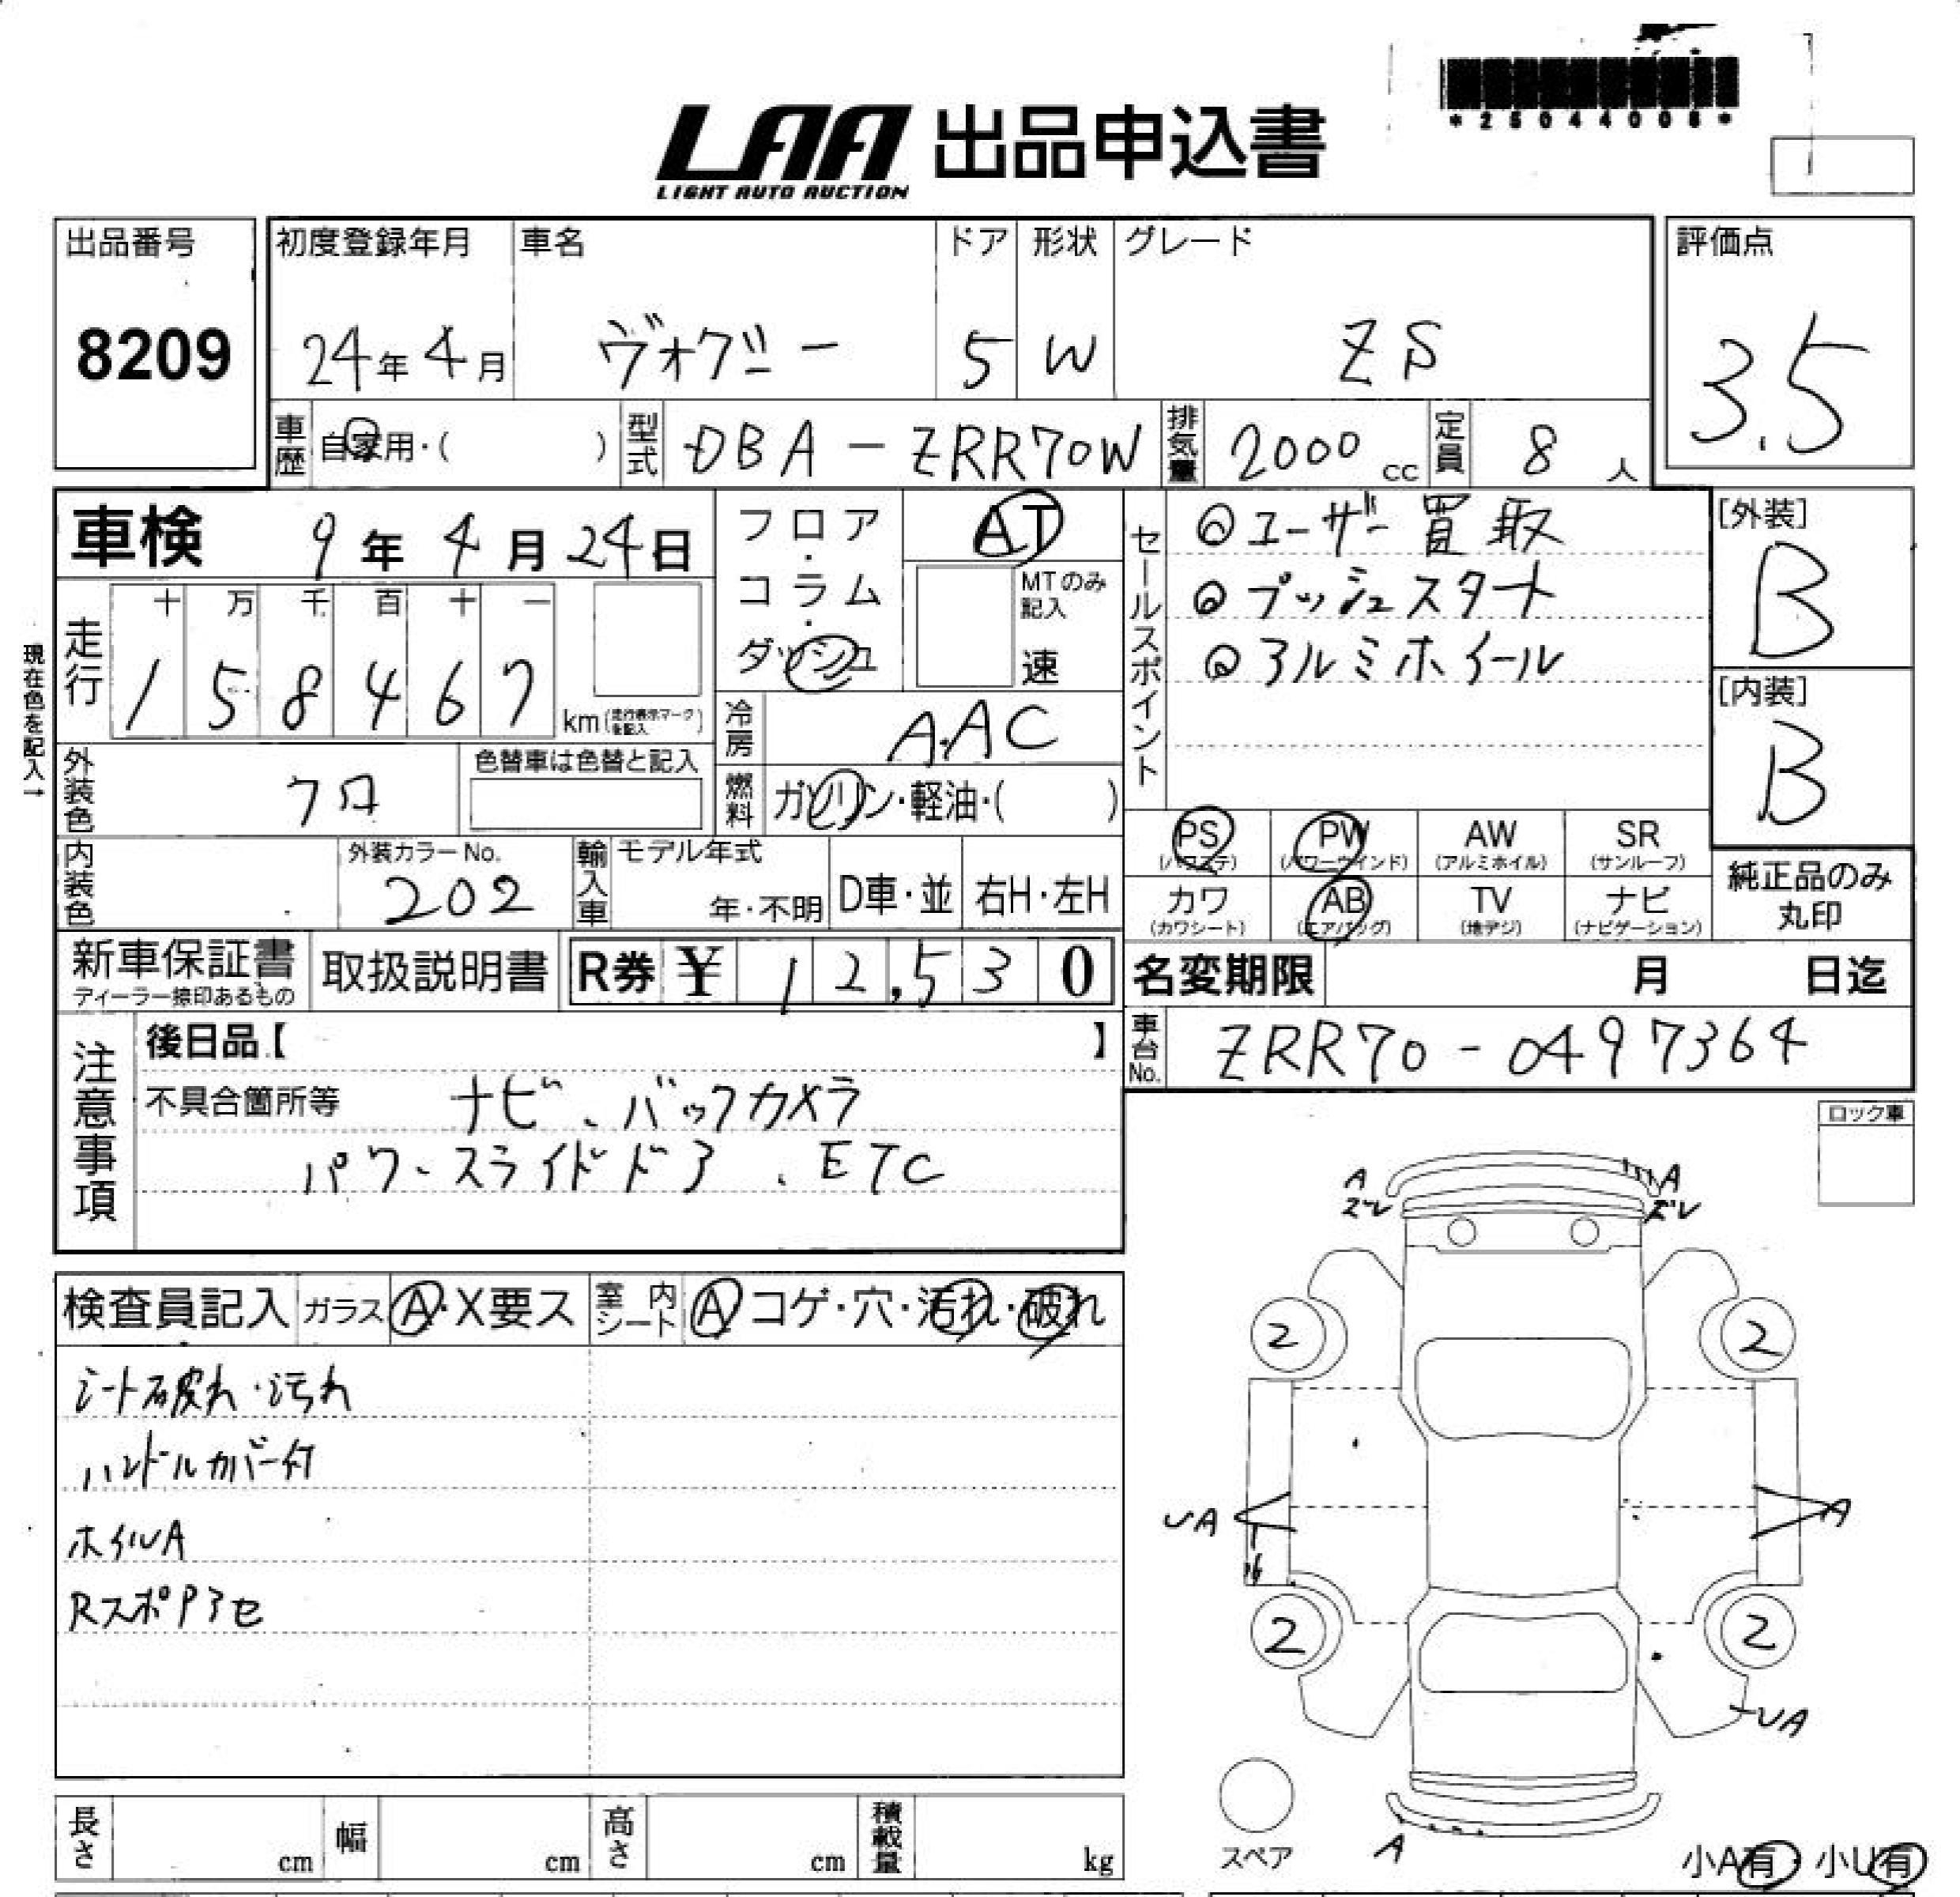 *25044008*
LAA 出品申込書
LIGHT AUTO AUCTION
出品番号
8209
初度登録年月
24年4月
車名
ヴォグジー
ドア
5
形状
W
グレード
ZS
評価点
3.5
車歴 自家用・( )
型式 DBA-ZRR70W
排気量 2000 cc
定員 8 人
車検 9年4月24日
現在色を記入→
走行
十 万 千 百 十 一
1 5 8 4 6 7
km(走行表示マークを記入)
フロア・コラム・ダッシュ
AT
MTのみ記入
速
冷房 A.AC
燃料 ガソリン・軽油・( )
セールスポイント
◎ユーザー買取
◎プッシュスタート
◎アルミホイール
[外装]
B
[内装]
B
外装色 クロ
色替車は色替と記入
内装色
外装カラーNo.
202
輸入車 モデル年式
年・不明
D車・並
右H・左H
PS (パワステ)
PW (パワーウインド)
AW (アルミホイル)
SR (サンルーフ)
カワ (カワシート)
AB (エアバッグ)
TV (地デジ)
ナビ (ナビゲーション)
純正品のみ
丸印
新車保証書
ディーラー捺印あるもの
取扱説明書
R券 ¥ 12,530
名変期限 月 日迄
車台No. ZRR70-0497364
注意事項
後日品【 】
不具合箇所等 ナビ、バックカメラ
パワースライドドア、ETC
ロック車
検査員記入 ガラス A・X要ス 室内シート A コゲ・穴・汚れ・破れ
シート破れ・汚れ
ハンドルカバー付
ホイルA
RスポPアセ
A
ズレ
A
ズレ
2
2
UA
A
2
2
UA
A
スペア
小A有・小U有
長さ cm
幅 cm
高さ cm
積載量 kg